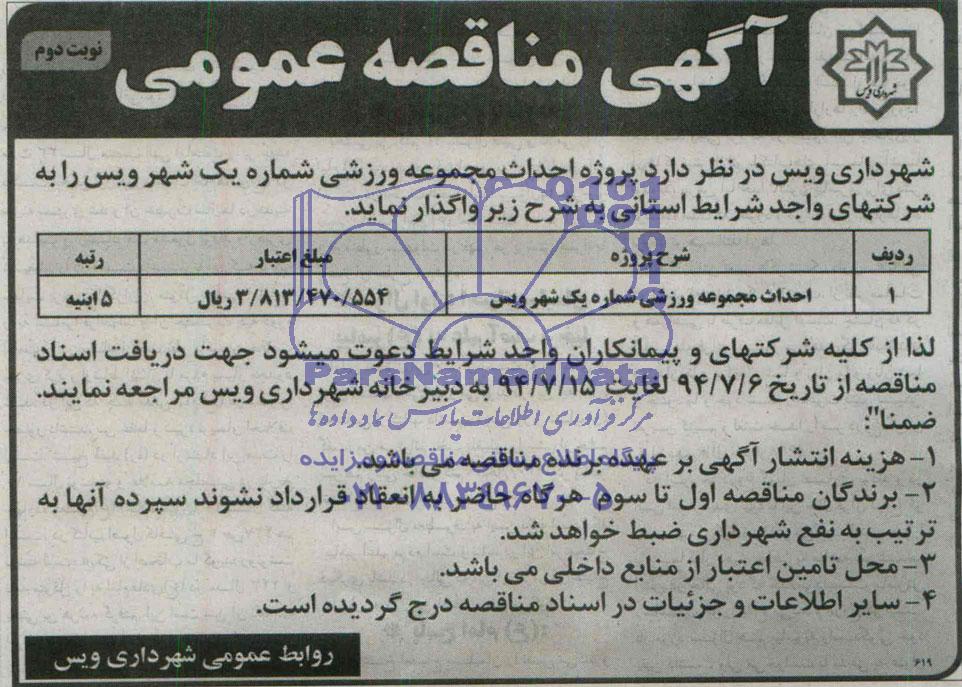 شهرداری ویس
آگهی مناقصه عمومی
نوبت دوم
شهرداری ویس در نظر دارد پروژه احداث مجموعه ورزشی شماره یک شهر ویس را به
شرکتهای واجد شرایط استانی به شرح زیر واگذار نماید.
ردیف شرح پروژه مبلغ اعتبار رتبه
۱ احداث مجموعه ورزشی شماره یک شهر ویس ۳/۸۱۳/۴۷۰/۵۵۴ ریال ۵ ابنیه
لذا از کلیه شرکتهای و پیمانکاران واجد شرایط دعوت میشود جهت دریافت اسناد
مناقصه از تاریخ ۹۴/۷/۶ لغایت ۹۴/۷/۱۵ به دبیرخانه شهرداری ویس مراجعه نمایند.
ضمنا":
۱- هزینه انتشار آگهی بر عهده برنده مناقصه می باشد.
۲- برندگان مناقصه اول تا سوم هرگاه حاضر به انعقاد قرارداد نشوند سپرده آنها به
ترتیب به نفع شهرداری ضبط خواهد شد.
۳- محل تامین اعتبار از منابع داخلی می باشد.
۴- سایر اطلاعات و جزئیات در اسناد مناقصه درج گردیده است.
روابط عمومی شهرداری ویس
۶۱۹
ParsNamadData
مرکز فرآوری اطلاعات پارس نماد داده ها